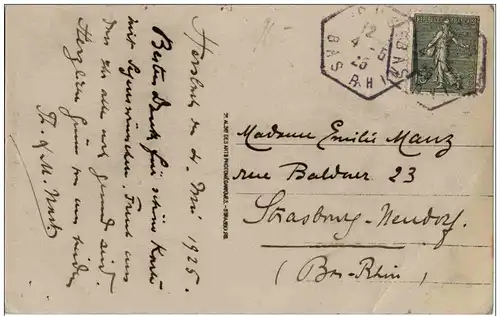 den 4. Mai 1925.
Besten Dank für schöne Karte
mit Segenswünschen. Freut uns
dass Ihr alle noch gesund seid.
Herzliche Grüsse von uns beiden
Th. & M.
Madame Emilie Manz
rue Baldner 23
Strasbourg-Neudorf.
(Bas-Rhin)
12
4 - 5
25
BAS RHIN